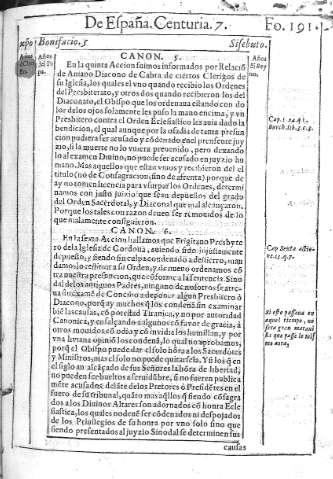 De España. Centuria. 7.
Fo. 191.
Bonifacio. 5
Sisebuto.
CANON. 5.
En la quinta Accion fuimos informados por Relació
de Aniano Diacono de Cabra de ciertos Clerigos de
su Iglesia, los quales el vno quando recibio los Ordenes
del Presbiterato, y otros dos quando recibieron los del
Diaconato, el Obispo que los ordenaua estando con do
lor de los ojos solamente les puso la mano encima, y vn
Presbitero contra el Orden Eclesiastico les auia dado la
bendicion, el qual aunque por la osadia de tanta presun
cion pudiera ser acusado y códenado en el presente juy
zio, si la muerte no lo vuiera preuenido, pero dexando
lo al examen Diuino, no puede ser acusado en juyzio hu
mano. Mas aquellos que estan viuos y recibieron del el
titulo (no de Consagracion sino de afrenta) porque de
ay no tomen licencia para vsurpar los Ordenes, determi
namos con justo juizio que sean depuestos del grado
del Orden Sacerdotal, y Diaconal que mal alcançaron,
Porque los tales con razon deuen ser remouidos de lo
que malamente consiguieron.
CANON. 6.
En la sexta Accion hallamos que Fragitano Presbyte
ro de la Iglesia de Cordoua, auiendo sido injustamente
depuesto, y siendo sin culpa condenado a destierro, man
damos lo restituir a su Orden, y de nueuo ordenamos có
tra nuestra presuncion, que cóforme a la sentencia Sino
dal delos antiguos Padres, ninguno de nosotros se atre
ua sin examé de Concilio deponer algun Presbitero ò
Diacono, porq̃ ay muchos q̃ los condená sin examinar
bié las causas, có potestad Tiranica, y no por autoridad
Canonica, y ensalçando a algunos có fauor de gracia, à
otros mouidos có odio y có inuidia los humillan, y por
vna liuiana opinió los condená, lo qual no aprobamos,
porq̃ el Obispo puede dar el solo hóra a los Sacerdotes
y Ministros, mas el solo no puede quitarsela. Y si los q̃ en
el siglo an alcáçado de sus Señores la hóra de libertad,
no pueden ser bueltos a seruidúbre, si no fueren publica
méte acusados delate de los Pretores ò Presidétes en el
fuero de su tribunal, quáto mas aq̃llos q̃ siendo cósagra
dos a los Diuinos Altares son adornados có honra Ecle
siastica, los quales no deué ser códenados ni despojados
de los Priuilegios de su honra por vno solo sino que
siendo presentados al juyzio Sinodal se determinen sus
causas